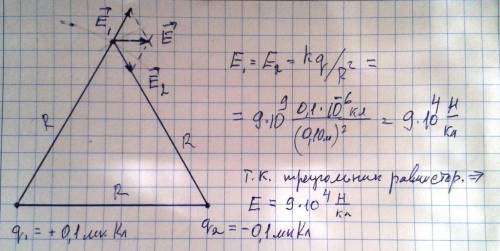 E⃗₁ E⃗
E⃗₂
R R
R
q₁ = +0,1 мкКл q₂ = −0,1 мкКл
E₁ = E₂ = kq/R² =
= 9·10⁹ 0,1·10⁻⁶ кл/(0,10м)² = 9·10⁴ Н/кл
Т.к. треугольник равностор. ⇒
E = 9·10⁴ Н/кл